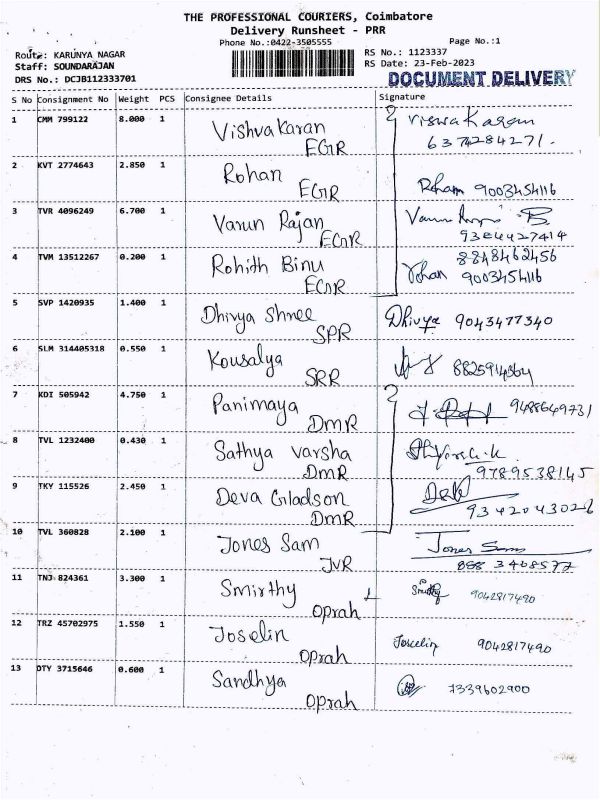 THE PROFESSIONAL COURIERS, Coimbatore
Delivery Runsheet - PRR
Phone No.:0422-3505555 Page No.:1
Route: KARUNYA NAGAR RS No.: 1123337
Staff: SOUNDARAJAN RS Date: 23-Feb-2023
DRS No.: DCJB112333701 DOCUMENT DELIVERY
S No Consignment No Weight PCS Consignee Details Signature
1 CMM 799122 8.000 1 Vishvakaran Viswakaran
EGR 6374284271.
2 KVT 2774643 2.850 1 Rohan
EGR Roham 9003454116
3 TVR 4096249 6.700 1 Varun Rajan
EGR 9384427414
4 TVM 13512267 0.200 1 Rohith Binu 8848462456
EGR Rohan 9003454116
5 SVP 1420935 1.400 1 Dhivya Shnee Dhivya 9043477340
SPR
6 SLM 314405318 0.550 1 Kousalya
SRR
7 KDI 505942 4.750 1 Panimaya 9488649731
DMR
8 TVL 1232400 0.430 1 Sathya varsha
DMR 9789538145
9 TKY 115526 2.450 1 Deva Gladson
DMR
10 TVL 360828 2.100 1 Jones Sam Jones Sam
JVR
11 TNJ 824361 3.300 1 Smirthy Smirthy 9042817490
Oprah
12 TRZ 45702975 1.550 1 Joselin Joscelin 9042817490
Oprah
13 DTY 3715646 0.600 1 Sandhya 7339602900
Oprah